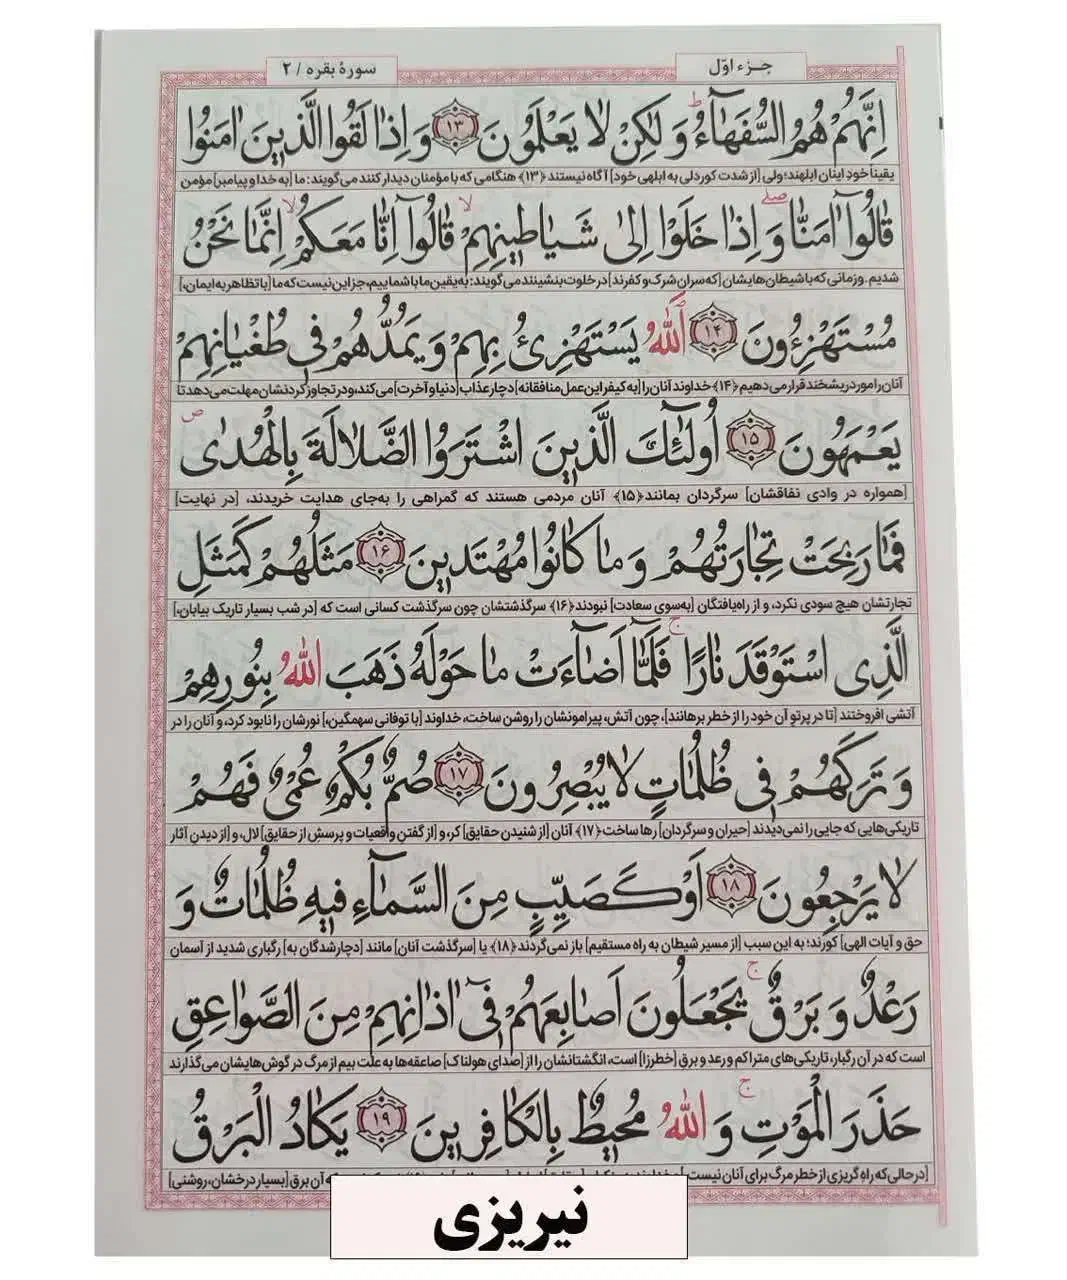 جزء اوّل
سورهٔ بقره / ۲
اِنَّهُمْ هُمُ السُّفَهَآءُ ط وَ لٰكِنْ لَا يَعْلَمُونَ ﴿۱۳﴾ وَ اِذَا لَقُوا الَّذِينَ اٰمَنُوا
یقیناً خودِ اینان ابلهند؛ ولی [از شدت کوردلی به ابلهی خود] آگاه نیستند ﴿۱۳﴾ هنگامی که با مؤمنان دیدار کنند می‌گویند: ما [به خدا و پیامبر] مؤمن
قَالُوٓا اٰمَنَّا صلے وَ اِذَا خَلَوْا اِلٰى شَيَاطِينِهِمْ لا قَالُوٓا اِنَّا مَعَكُمْ لا اِنَّمَا نَحْنُ
شدیم. و زمانی که با شیطان‌هایشان [که سران شرک و کفرند] در خلوت بنشینند می‌گویند: به یقین ما با شماییم، جز این نیست که ما [با تظاهر به ایمان،]
مُسْتَهْزِءُونَ ﴿۱۴﴾ اَللّٰهُ يَسْتَهْزِئُ بِهِمْ وَ يَمُدُّهُمْ فِى طُغْيَانِهِمْ
آنان را مورد ریشخند قرار می‌دهیم ﴿۱۴﴾ خداوند آنان را [به کیفر این عمل منافقانه] دچار عذاب [دنیا و آخرت] می‌کند، و در تجاوز کردنشان مهلت می‌دهد تا
يَعْمَهُونَ ﴿۱۵﴾ اُولٰٓئِكَ الَّذِينَ اشْتَرَوُا الضَّلَالَةَ بِالْهُدٰى ص
[همواره در وادی نفاقشان] سرگردان بمانند ﴿۱۵﴾ آنان مردمی هستند که گمراهی را به‌جای هدایت خریدند، [در نهایت]
فَمَا رَبِحَتْ تِجَارَتُهُمْ وَ مَا كَانُوا مُهْتَدِينَ ﴿۱۶﴾ مَثَلُهُمْ كَمَثَلِ
تجارتشان هیچ سودی نکرد، و از راه‌یافتگان [به‌سوی سعادت] نبودند ﴿۱۶﴾ سرگذشتشان چون سرگذشت کسانی است که [در شب بسیار تاریک بیابان،]
الَّذِى اسْتَوْقَدَ نَارًا ج فَلَمَّآ اَضَآءَتْ مَا حَوْلَهُ ذَهَبَ اللّٰهُ بِنُورِهِمْ
آتشی افروختند [تا در پرتو آن خود را از خطر برهانند]، چون آتش، پیرامونشان را روشن ساخت، خداوند [با توفانی سهمگین،] نورشان را نابود کرد، و آنان را در
وَ تَرَكَهُمْ فِى ظُلُمَاتٍ لَا يُبْصِرُونَ ﴿۱۷﴾ صُمٌّ بُكْمٌ عُمْىٌ فَهُمْ
تاریکی‌هایی که جایی را نمی‌دیدند [حیران و سرگردان] رها ساخت ﴿۱۷﴾ آنان [از شنیدن حقایق] کر، و [از گفتن واقعیات و پرسش از حقایق] لال، و [از دیدن آثار
لَا يَرْجِعُونَ ﴿۱۸﴾ اَوْ كَصَيِّبٍ مِنَ السَّمَآءِ فِيهِ ظُلُمَاتٌ وَ
حق و آیات الهی] کورند؛ به این سبب [از مسیر شیطان به راه مستقیم] باز نمی‌گردند ﴿۱۸﴾ یا [سرگذشت آنان] مانند [دچارشدگان به] رگباری شدید از آسمان
رَعْدٌ وَ بَرْقٌ ج يَجْعَلُونَ اَصَابِعَهُمْ فِىٓ اٰذَانِهِمْ مِنَ الصَّوَاعِقِ
است که در آن رگبار، تاریکی‌های متراکم و رعد و برق [خطرزا] است، انگشتانشان را از [صدای هولناک] صاعقه‌ها به علت بیم از مرگ در گوش‌هایشان می‌گذارند
حَذَرَ الْمَوْتِ ج وَ اللّٰهُ مُحِيطٌ بِالْكَافِرِينَ ﴿۱۹﴾ يَكَادُ الْبَرْقُ
[در حالی که راه گریزی از خطر مرگ برای آنان نیست آن برق [بسیار درخشان، روشنی]
نیریزی